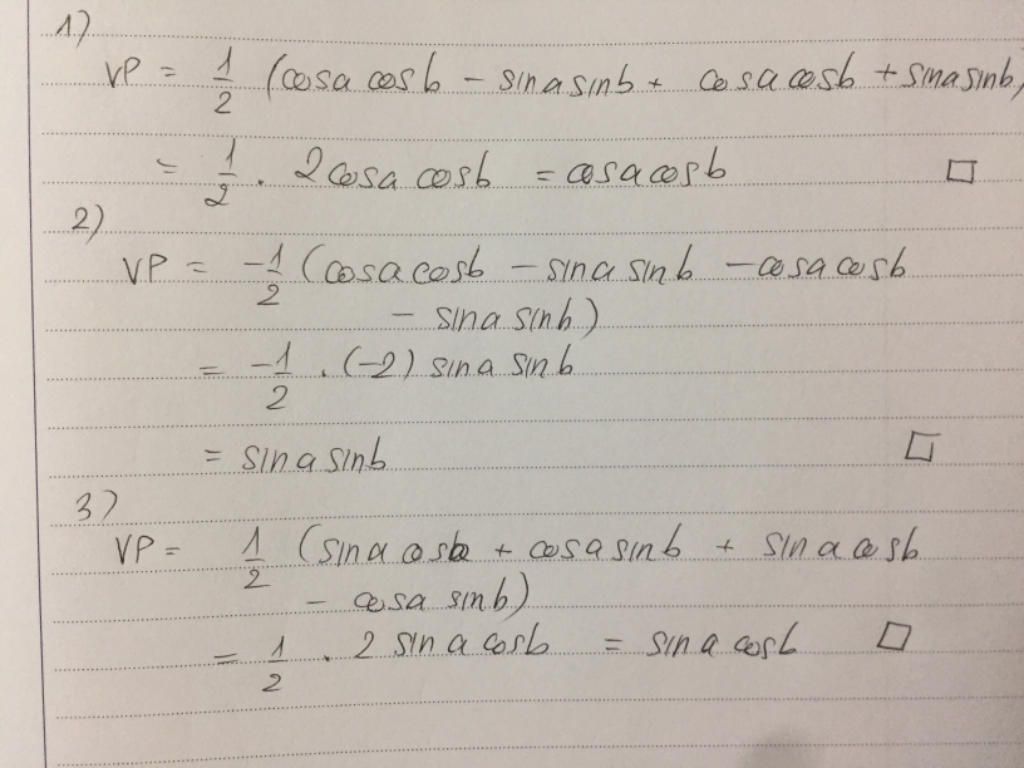 1)
VP = 1/2 (cosa cosb - sina sinb + cosa cosb + sina sinb)
= 1/2 . 2cosa cosb = cosa cosb □
2)
VP = -1/2 (cosa cosb - sina sinb - cosa cosb
- sina sinb)
= -1/2 . (-2) sina sinb
= sina sinb □
3)
VP = 1/2 (sina cosb + cosa sinb + sina cosb
- cosa sinb)
= 1/2 . 2 sina cosb = sina cosb □